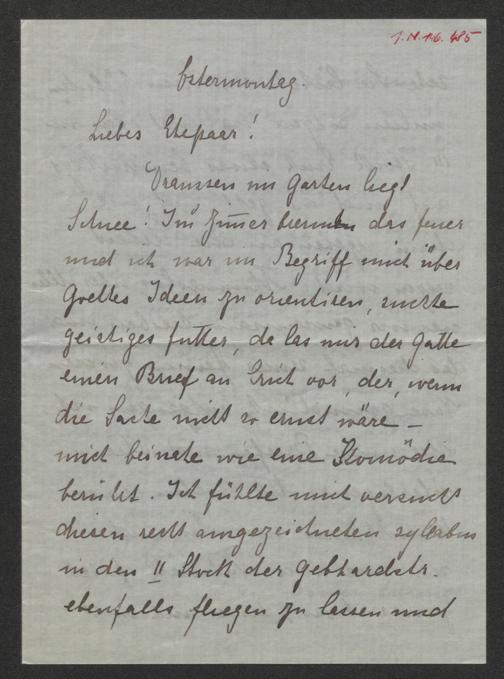 I.N. 196.485
Ostermontag.
Liebes Ehepaar!
Draussen im Garten liegt
Schnee! Im Zimmer brennen das feuer
und ich war im Begriff mich über
Goethes Ideen zu orientiren, suchte
geistiges futter, da las mir der Gatte
einen Brief an Erich vor, der, wenn
die Sache nicht so ernst wäre –
mich beinahe wie eine Komödie
berührt. Ich fühlte mich versucht
diesen recht ausgezeichneten
in den II Stock der Gebhardstr.
ebenfalls fliegen zu lassen und